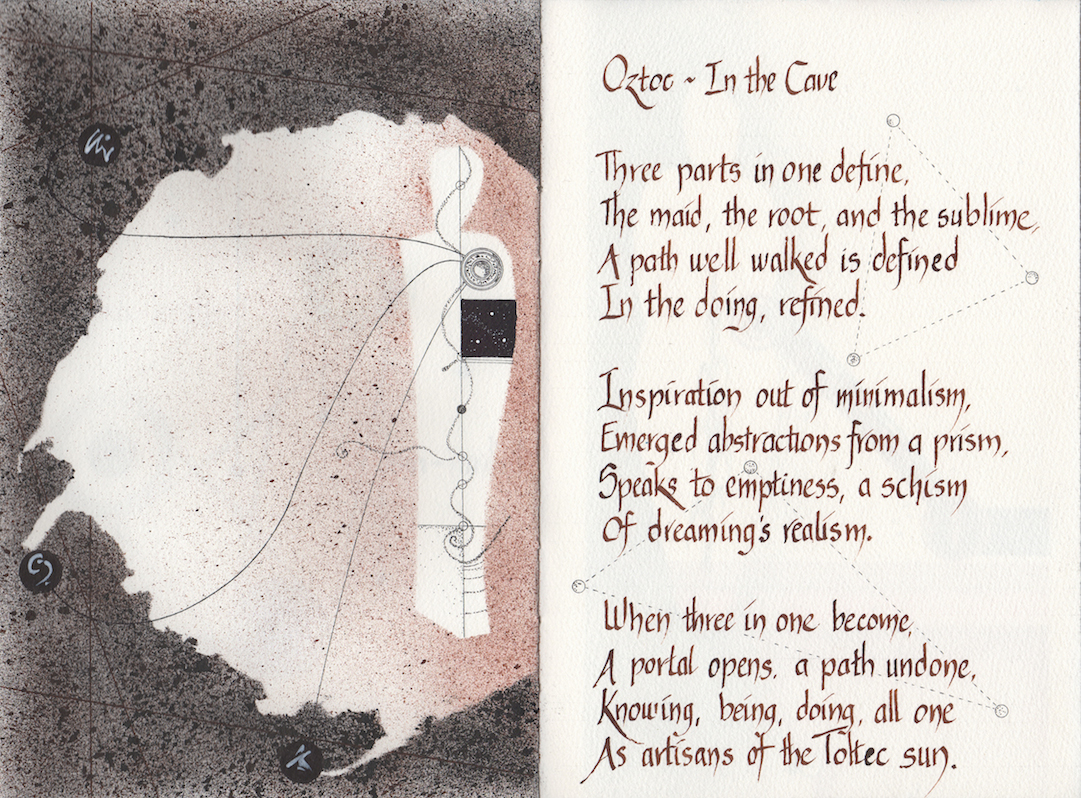 Oztoc ~ In the Cave
Three parts in one define,
The maid, the root, and the sublime,
A path well walked is defined
In the doing, refined.
Inspiration out of minimalism,
Emerged abstractions from a prism,
Speaks to emptiness, a schism
Of dreaming's realism.
When three in one become,
A portal opens, a path undone,
Knowing, being, doing, all one
As artisans of the Toltec sun.